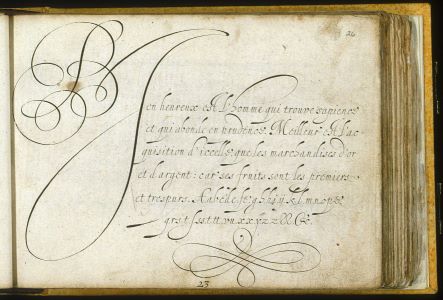 26
en heureux est l'homme qui trouve sapience
et qui abonde en prudence. Meilleur est l'ac-
quisition d'icelle que les marchandises d'or
et d'argent: car ses fruits sont les premiers
et trespurs.
23